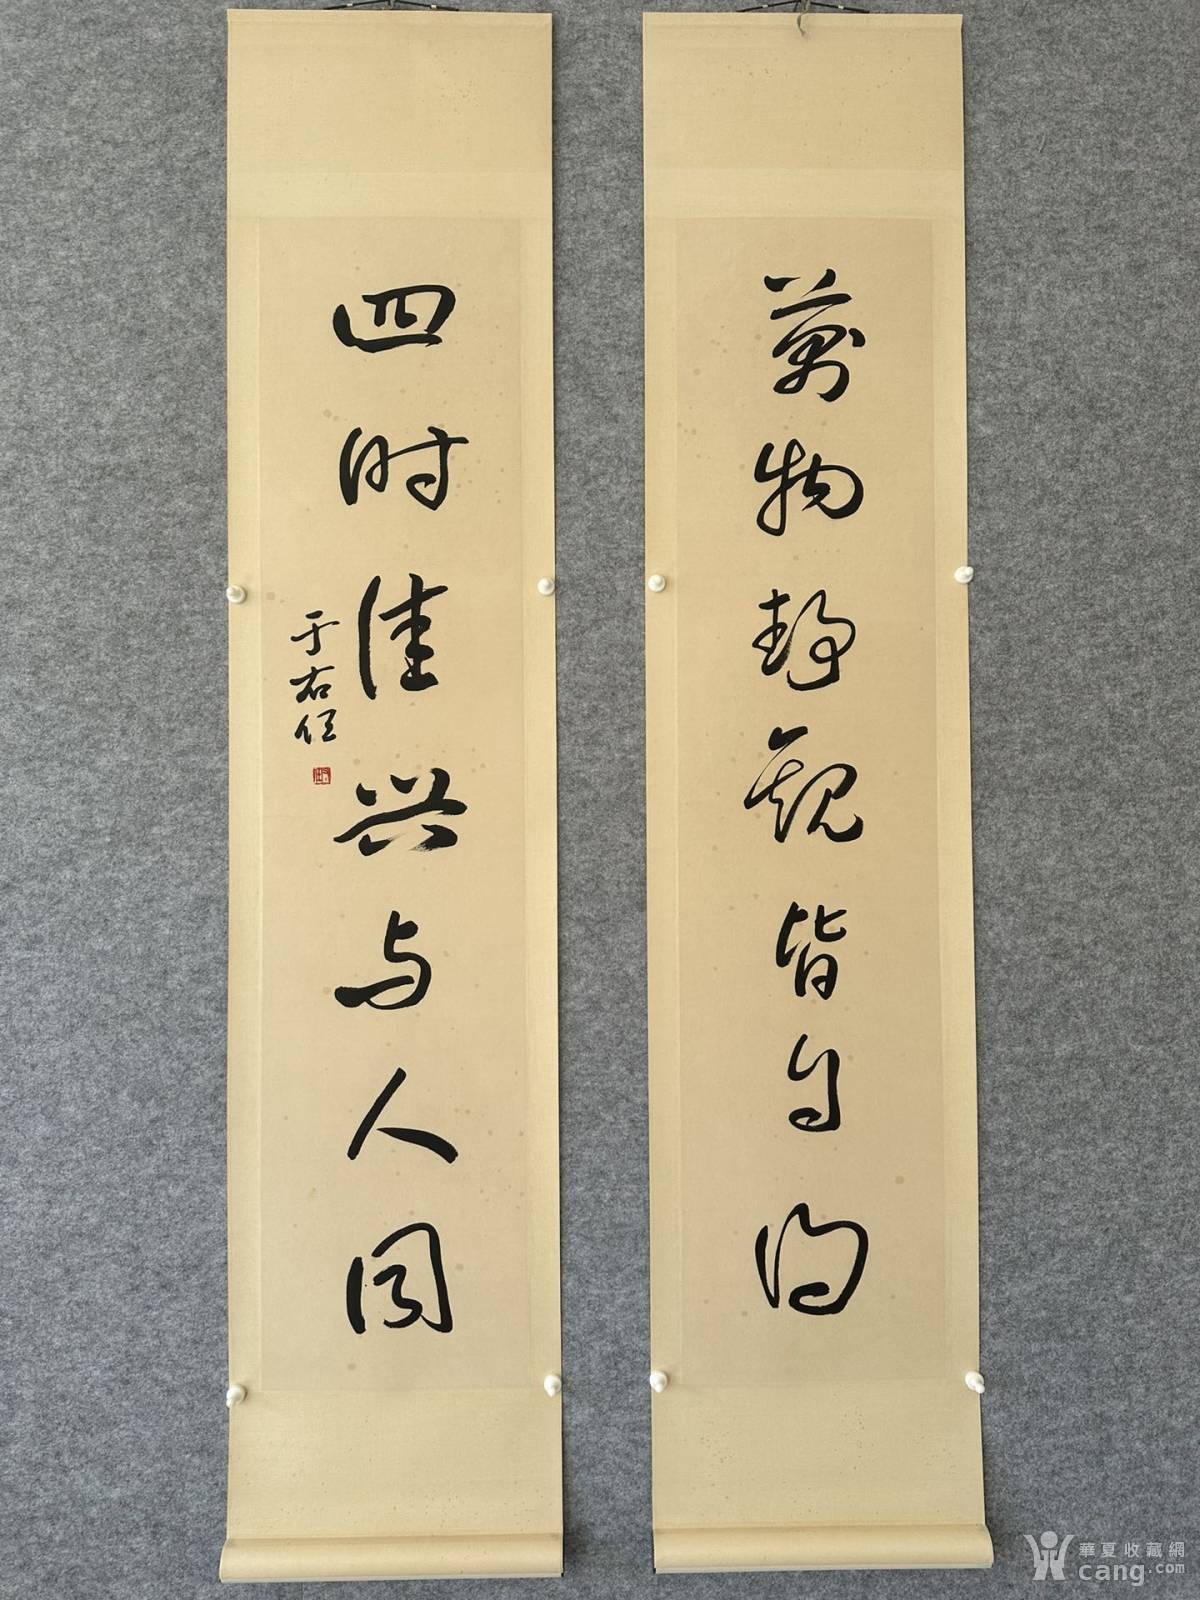 萬物静观皆自得
四时佳兴与人同
于右任
華夏收藏網
cang.com